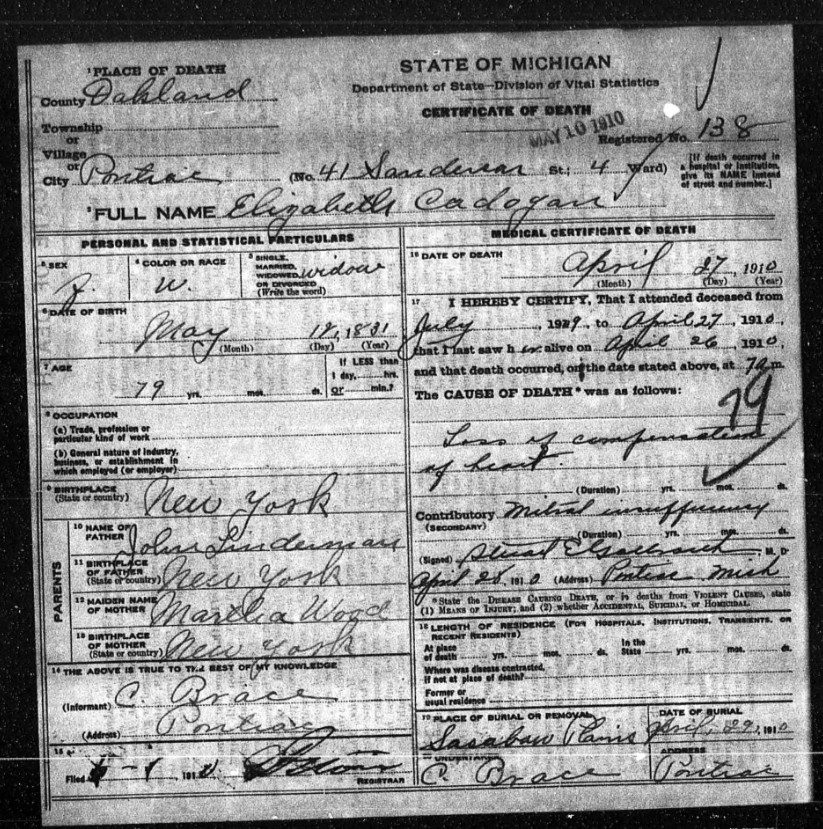 ¹PLACE OF DEATH
County Oakland
Township
or
Village
or
City Pontiac
STATE OF MICHIGAN
Department of State—Division of Vital Statistics
CERTIFICATE OF DEATH
MAY 10 1910
Registered No. 138
(No. 41 Sanderson St.; 4 Ward)
[If death occurred in
a hospital or institution,
give its NAME instead
of street and number.]
²FULL NAME Elizabeth Cadogan
PERSONAL AND STATISTICAL PARTICULARS
³ SEX
f.
⁴ COLOR OR RACE
W.
⁵ SINGLE,
MARRIED,
WIDOWED,
OR DIVORCED
(Write the word)
widow
⁶ DATE OF BIRTH
May 1831
(Month) (Day) (Year)
⁷ AGE
79 yrs. mos. ds.
If LESS than
1 day, hrs.
or min.?
⁸ OCCUPATION
(a) Trade, profession or
particular kind of work
(b) General nature of industry,
business, or establishment in
which employed (or employer)
⁹ BIRTHPLACE
(State or country)
New York
PARENTS
10 NAME OF
FATHER
John Linderman
11 BIRTHPLACE
OF FATHER
(State or country)
New York
12 MAIDEN NAME
OF MOTHER
Martha Wood
13 BIRTHPLACE
OF MOTHER
(State or country)
New York
14 THE ABOVE IS TRUE TO THE BEST OF MY KNOWLEDGE
(Informant) C. Brace
(Address) Pontiac
15
Filed 191
REGISTRAR
MEDICAL CERTIFICATE OF DEATH
16 DATE OF DEATH
April 27, 1910
(Month) (Day) (Year)
17 I HEREBY CERTIFY, That I attended deceased from
July, 19 9, to April 27, 1910,
that I last saw her alive on April 26, 1910,
and that death occurred, on the date stated above, at 7a m.
The CAUSE OF DEATH* was as follows:
79
Loss of compensation
of heart.
(Duration) yrs. mos. ds.
Contributory Mitral insufficiency
(SECONDARY)
(Duration) yrs. mos. ds.
(Signed) Stuart E Galbraith, M. D.
April 28, 1910 (Address) Pontiac Mich
*State the DISEASE CAUSING DEATH, or in deaths from VIOLENT CAUSES, state
(1) MEANS OF INJURY; and (2) whether ACCIDENTAL, SUICIDAL, or HOMICIDAL.
18 LENGTH OF RESIDENCE (FOR HOSPITALS, INSTITUTIONS, TRANSIENTS, OR
RECENT RESIDENTS)
At place
of death yrs. mos. ds.
In the
State yrs. mos. ds.
Where was disease contracted,
if not at place of death?
Former or
usual residence
19 PLACE OF BURIAL OR REMOVAL
Sasabaw Plains
DATE OF BURIAL
April, 29, 1910
UNDERTAKER
C. Brace
ADDRESS
Pontiac